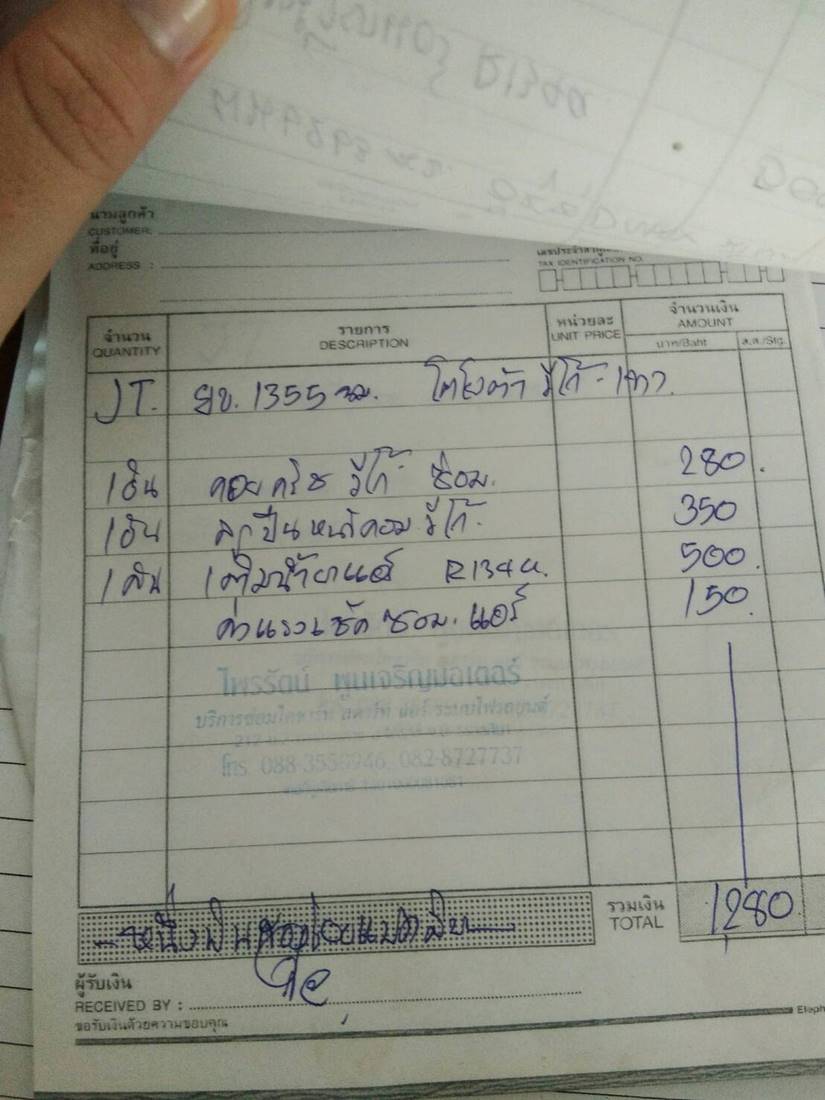 นามลูกค้า
CUSTOMER:
ที่อยู่
ADDRESS :
TAX IDENTIFICATION NO.
จำนวน QUANTITY รายการ DESCRIPTION หน่วยละ UNIT PRICE จำนวนเงิน AMOUNT
บาท/Baht ส.ต./Stg.
JT. ยข. 1355 นม. โตโยต้า วีโก้ - เทา.
1 อัน คอยคริช วีโก้ ซ่อม. 280.
1 อัน ลูกปืนหน้าคอม วีโก้. 350
เติมน้ำยาแอร์ R134a. 500.
ค่าแรงเช็ค ซ่อม. แอร์ 150
ไพรรัตน์ พูนเจริญมอเตอร์
บริการซ่อมไดชาร์ท สตาร์ท แอร์ ระบบไฟรถยนต์
โทร. 082-8727737
หนึ่งพันสองร้อยแปดสิบ รวมเงิน TOTAL 1280
ผู้รับเงิน
RECEIVED BY :
ขอรับเงินด้วยความขอบคุณ